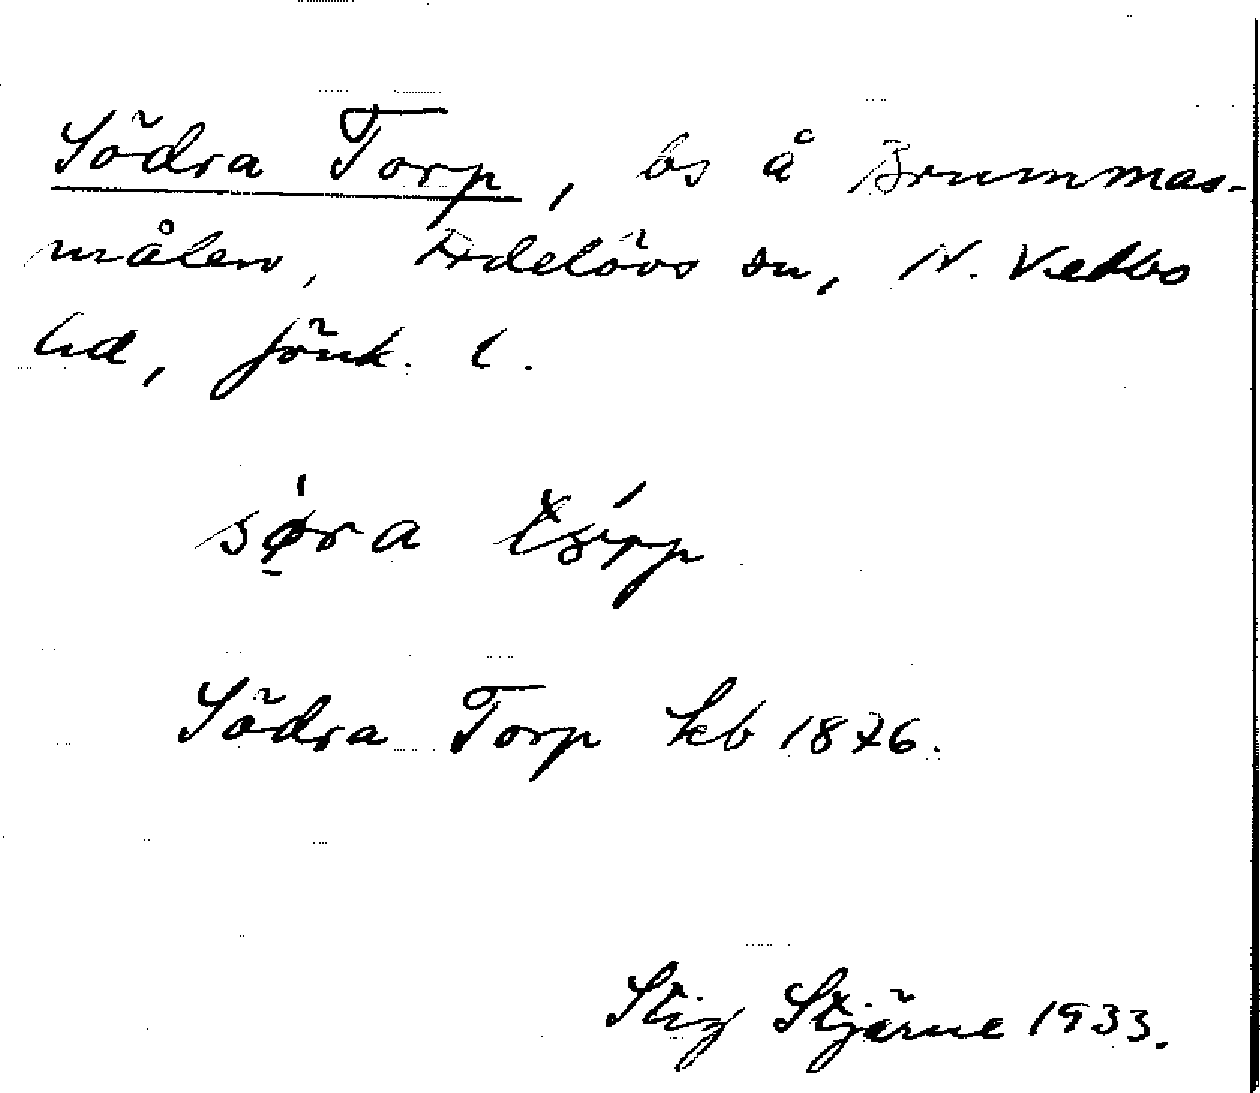 Södra Torp, bs å Brummas-
målen, Adelövs sn, N. Vedbo
hd, Jönk. l.
Södra Torp kb 1876.
Stig Stjärne 1933.